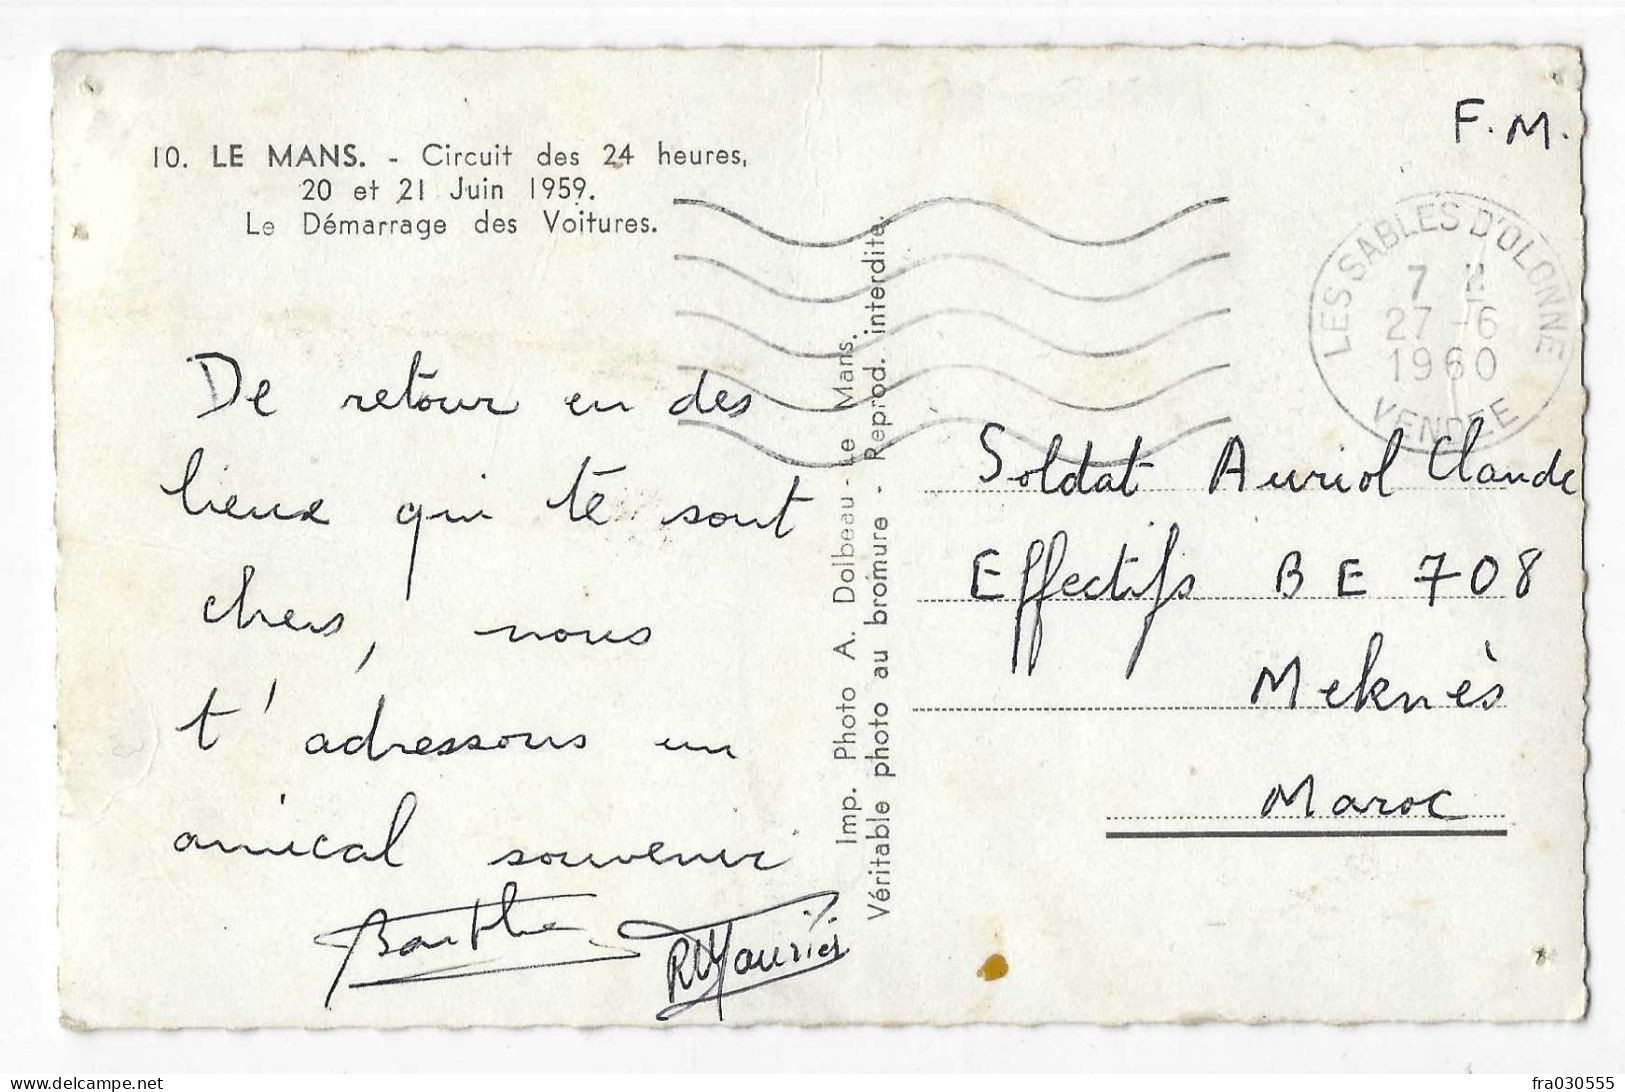 F. M.
10. LE MANS. - Circuit des 24 heures,
20 et 21 Juin 1959.
Le Démarrage des Voitures.
LES SABLES D'OLONNE
7
27 - 6
1960
VENDÉE
De retour en des
lieux qui te sont
chers, nous
t'adressons un
amical souvenir
Barthe
Imp. Photo A. Dolbeau - Le Mans.
Véritable photo au bromure - Reprod. interdite.
Soldat Auriol Claude
Effectifs BE 708
Meknès
Maroc
delcampe.net
fra030555